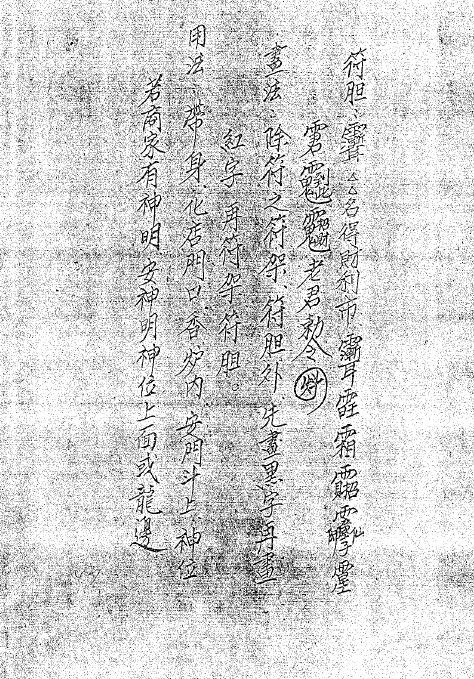 符胆：△△名得財利市霜
老君勅令
畫法：除符之符架、符胆外、先畫黑字再畫
紅字、再符架符胆。
用法：帶身、化店門口、香炉内、安門斗上、神位
若商家有神明、安神明神位上面或龍邊